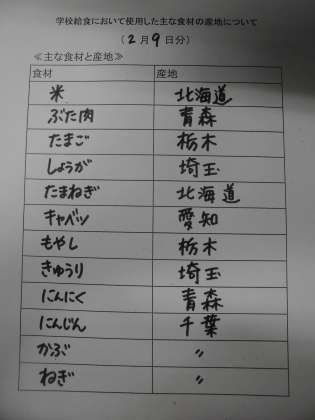 学校給食において使用した主な食材の産地について
(2月9日分)
≪主な食材と産地≫
食材 産地
米 北海道
ぶた肉 青森
たまご 栃木
しょうが 埼玉
たまねぎ 北海道
キャベツ 愛知
もやし 栃木
きゅうり 埼玉
にんにく 青森
にんじん 千葉
かぶ 〃
ねぎ 〃